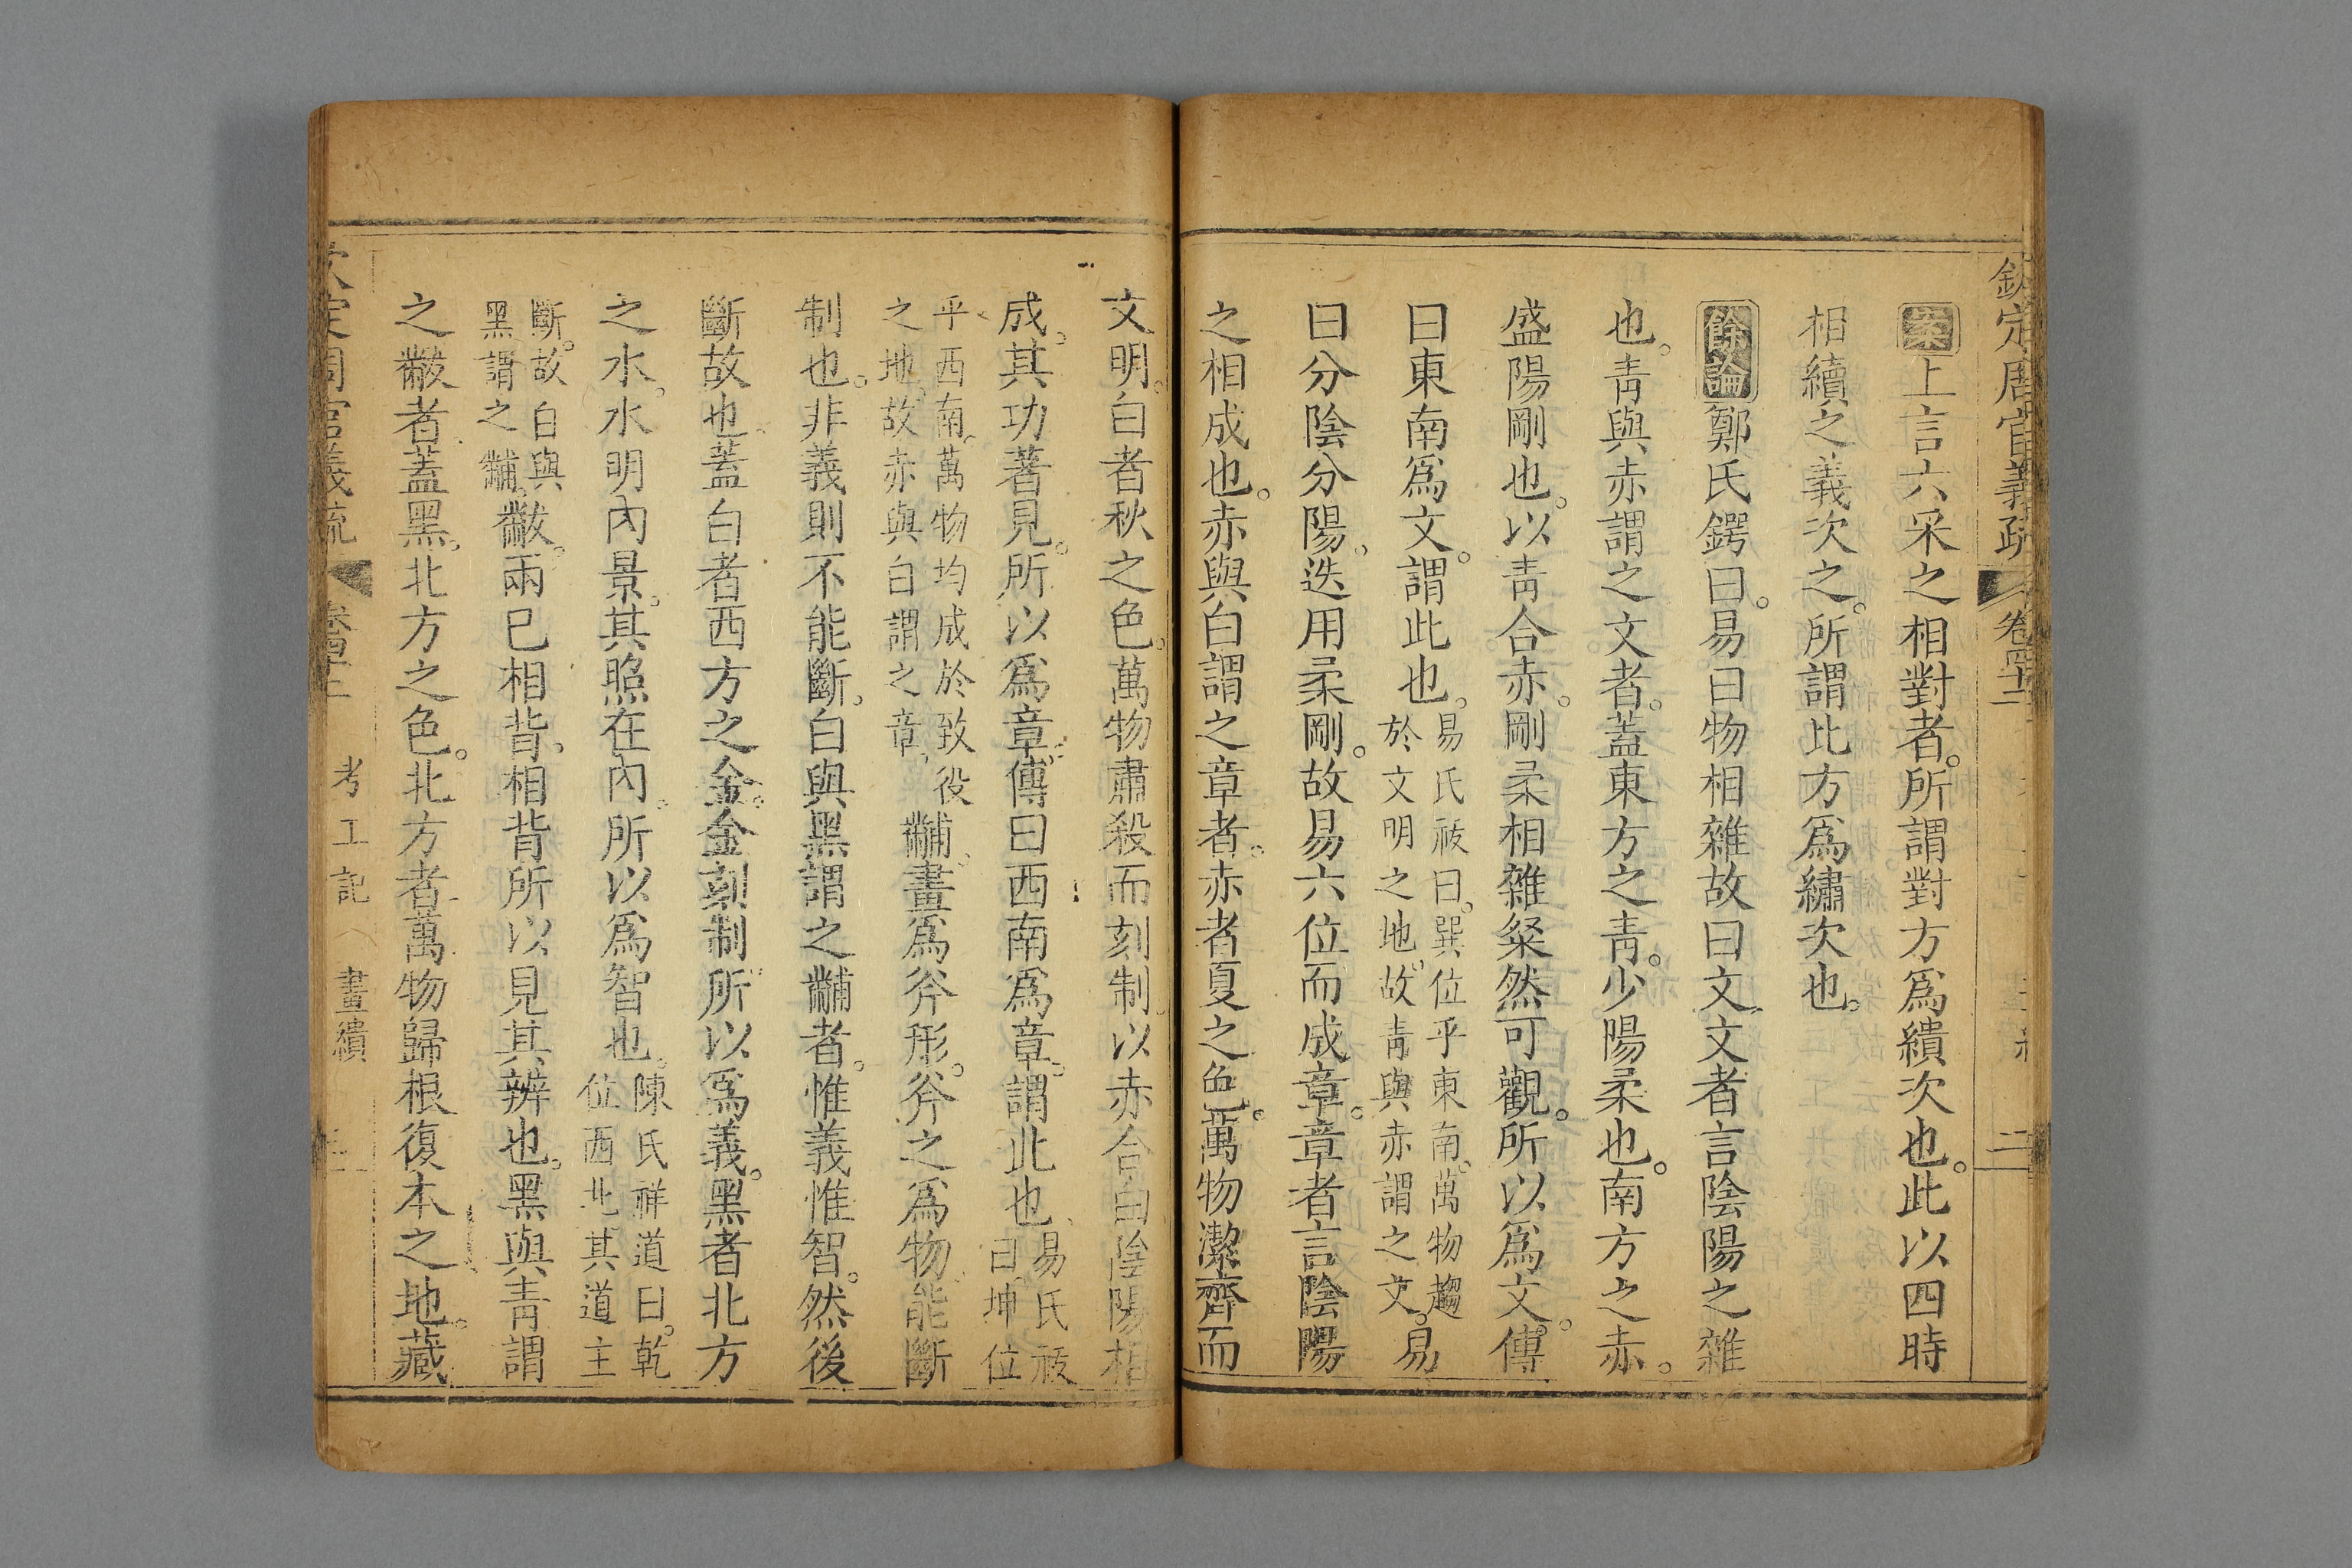 欽定周官義疏 卷四十二 二
案上言六采之相對者。所謂對方爲繢次也。此以四時
相續之義次之。所謂比方爲繡次也。
餘論鄭氏鍔曰。易曰物相雜故曰文。文者言陰陽之雜
也。靑與赤謂之文者。蓋東方之靑。少陽柔也。南方之赤。
盛陽剛也。以靑合赤。剛柔相雜粲然可觀。所以爲文。傳
曰東南爲文。謂此也。易氏祓曰。巽位乎東南。萬物趨
於文明之地。故靑與赤謂之文。易
曰分陰分陽。迭用柔剛。故易六位而成章。章者言陰陽
之相成也。赤與白謂之章者。赤者夏之色。萬物潔齊而
文明。白者秋之色。萬物肅殺而刻制。以赤合白陰陽相
成。其功著見。所以爲章。傳曰西南爲章。謂此也。易氏祓
曰坤位
乎西南。萬物均成於致役
之地。故赤與白謂之章。黼畫爲斧形。斧之爲物能斷
制也。非義則不能斷。白與黑謂之黼者。惟義惟智。然後
斷故也。蓋白者西方之金。金刻制所以爲義。黑者北方
之水。水明內景。其照在內。所以爲智也。陳氏祥道曰。乾
位西北其道主
斷。故白與
黑謂之黼。黻兩巳相背。相背所以見其辨也。黑與靑謂
之黻者。蓋黑。北方之色。北方者萬物歸根復本之地。藏
欽定周官義疏 卷四十二 考工記 畫繢